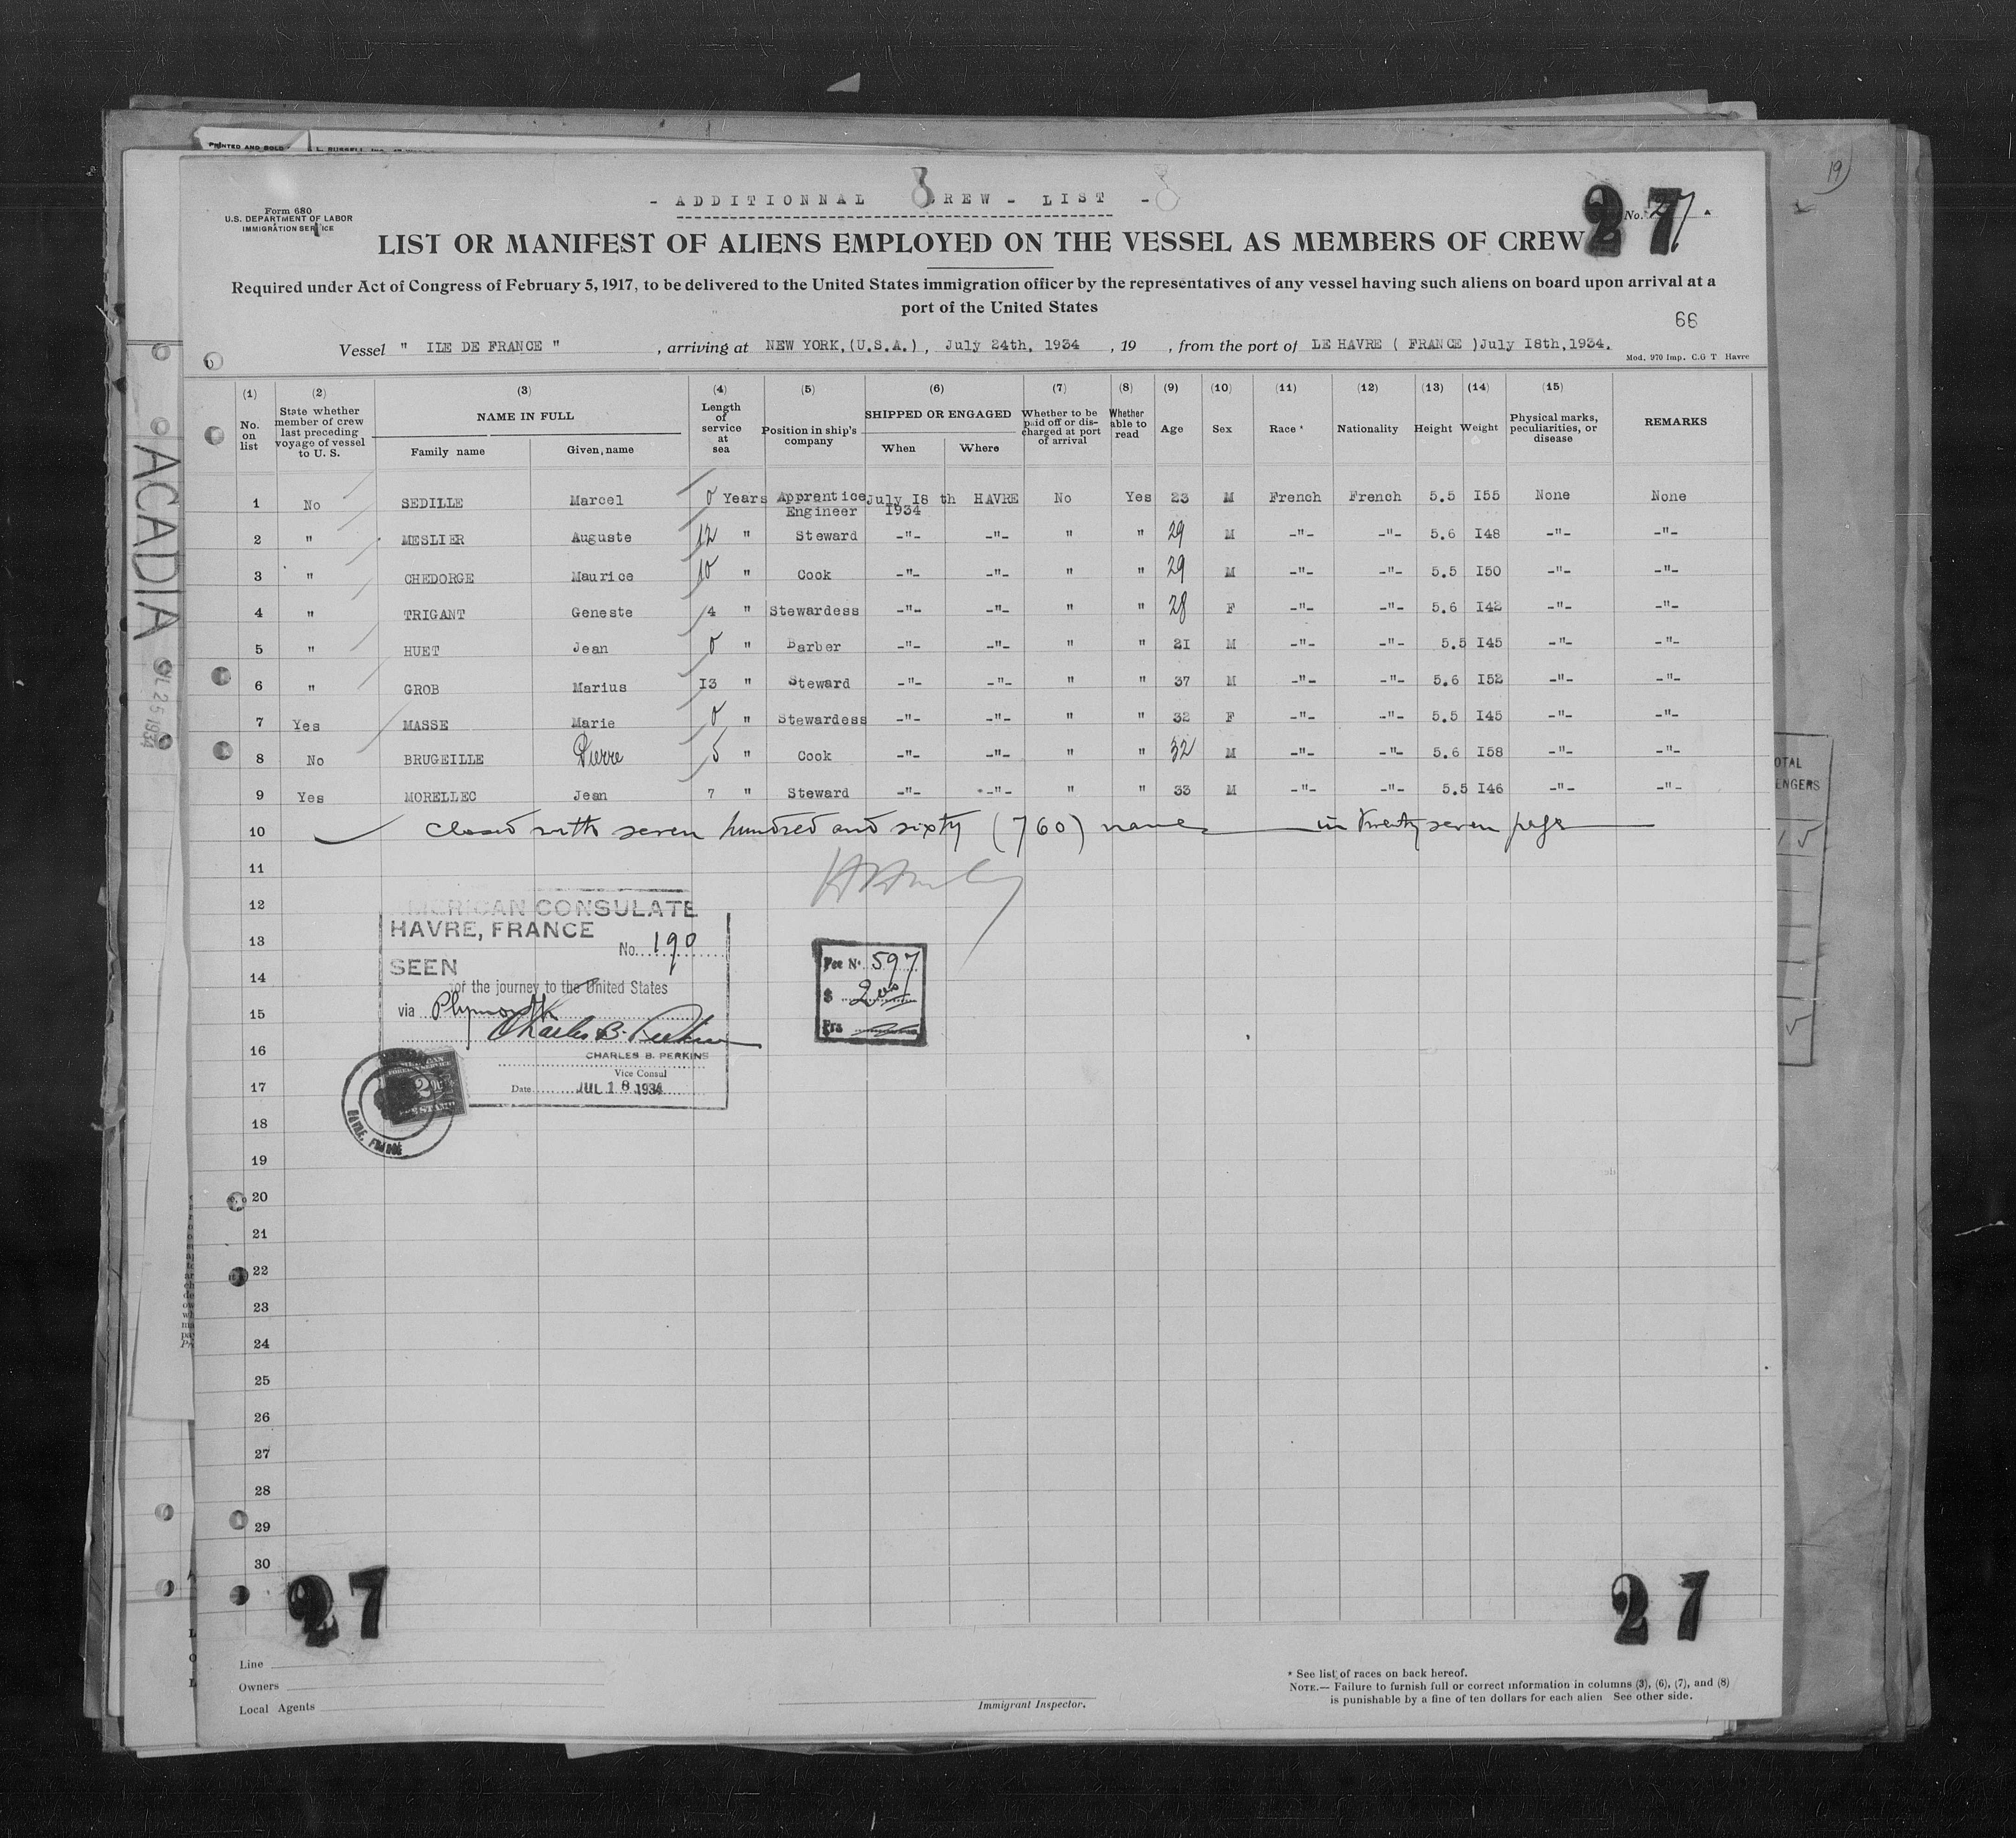 PRINTED AND SOLD
19
- ADDITIONNAL CREW - LIST -
8
8
Form 680
U.S. DEPARTMENT OF LABOR
IMMIGRATION SERVICE
No. 27
27
LIST OR MANIFEST OF ALIENS EMPLOYED ON THE VESSEL AS MEMBERS OF CREW
Required under Act of Congress of February 5, 1917, to be delivered to the United States immigration officer by the representatives of any vessel having such aliens on board upon arrival at a
port of the United States
66
Vessel " ILE DE FRANCE " , arriving at NEW YORK,(U.S.A.), July 24th, 1934 , 19 , from the port of LE HAVRE ( FRANCE )July I8th,1934.
Mod. 970 Imp. C.G T Havre
(1) (2) (3) (4) (5) (6) (7) (8) (9) (10) (11) (12) (13) (14) (15)
No. on list State whether member of crew last preceding voyage of vessel to U. S. NAME IN FULL Length of service at sea Position in ship's company SHIPPED OR ENGAGED Whether to be paid off or discharged at port of arrival Whether able to read Age Sex Race * Nationality Height Weight Physical marks, peculiarities, or disease REMARKS
Family name Given name When Where
1 No SEDILLE Marcel 0 Years Apprentice July I8 th HAVRE No Yes 23 M French French 5.5 I55 None None
Engineer I934
2 " MESLIER Auguste 12 " Steward -"- -"- " " 29 M -"- -"- 5.6 I48 -"- -"-
3 " CHEDORGE Maurice 10 " Cook -"- -"- " " 29 M -"- -"- 5.5 I50 -"- -"-
4 " TRIGANT Geneste 4 " Stewardess -"- -"- " " 28 F -"- -"- 5.6 I42 -"- -"-
5 " HUET Jean 0 " Barber -"- -"- " " 2I M -"- -"- 5.5 I45 -"- -"-
6 " GROB Marius I3 " Steward -"- -"- " " 37 M -"- -"- 5.6 I52 -"- -"-
7 Yes MASSE Marie 0 " Stewardess -"- -"- " " 32 F -"- -"- 5.5 I45 -"- -"-
8 No BRUGEILLE Pierre 5 " Cook -"- -"- " " 32 M -"- -"- 5.6 I58 -"- -"-
9 Yes MORELLEC Jean 7 " Steward -"- -"- " " 33 M -"- -"- 5.5 I46 -"- -"-
10 Closed with seven hundred and sixty (760) names in twenty seven page
11
12
13
14
15
16
17
18
19
20
21
22
23
24
25
26
27
28
29
30
AMERICAN CONSULATE
HAVRE, FRANCE
No. 190
SEEN
for the journey to the United States
via Plymouth
Charles B. Perkins
CHARLES B. PERKINS
Vice Consul
Date JUL 18 1934
HAVRE, FRANCE
Fee No. 597
$ 2.00
Frs
ACADIA
JUL 25 1934
27
27
Line
Owners
Local Agents
Immigrant Inspector.
* See list of races on back hereof.
NOTE.— Failure to furnish full or correct information in columns (3), (6), (7), and (8)
is punishable by a fine of ten dollars for each alien See other side.